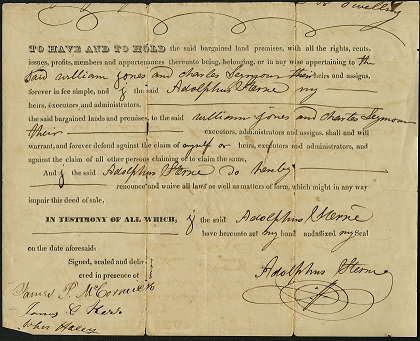 Dwelling
TO HAVE AND TO HOLD the said bargained land premises, with all the rights, rents,
issues, profits, members and appurtenances thereunto being, belonging, or in any wise appertaining to the
said william Jones and charles Seymour their heirs and assigns,
forever in fee simple, and I the said Adolphus Sterne my
heirs, executors, and administrators,
the said bargained lands and premises, to the said william Jones and charles Seymour
their executors, administrators and assigns, shall and will
warrant, and forever defend against the claim of myself or heirs, executors and administrators, and
against the claim of all other persons claiming or to claim the same,
And I the said Adolphus Sterne do hereby
renounce and waive all laws as well as matters of form, which might in any way
impair this deed of sale.
IN TESTIMONY OF ALL WHICH, I the said Adolphus Sterne
have hereunto set my hand and affixed my Seal
on the date aforesaid:
Signed, sealed and deliv-
ered in presence of
Adolphus Sterne
James P. McCormick
James
John